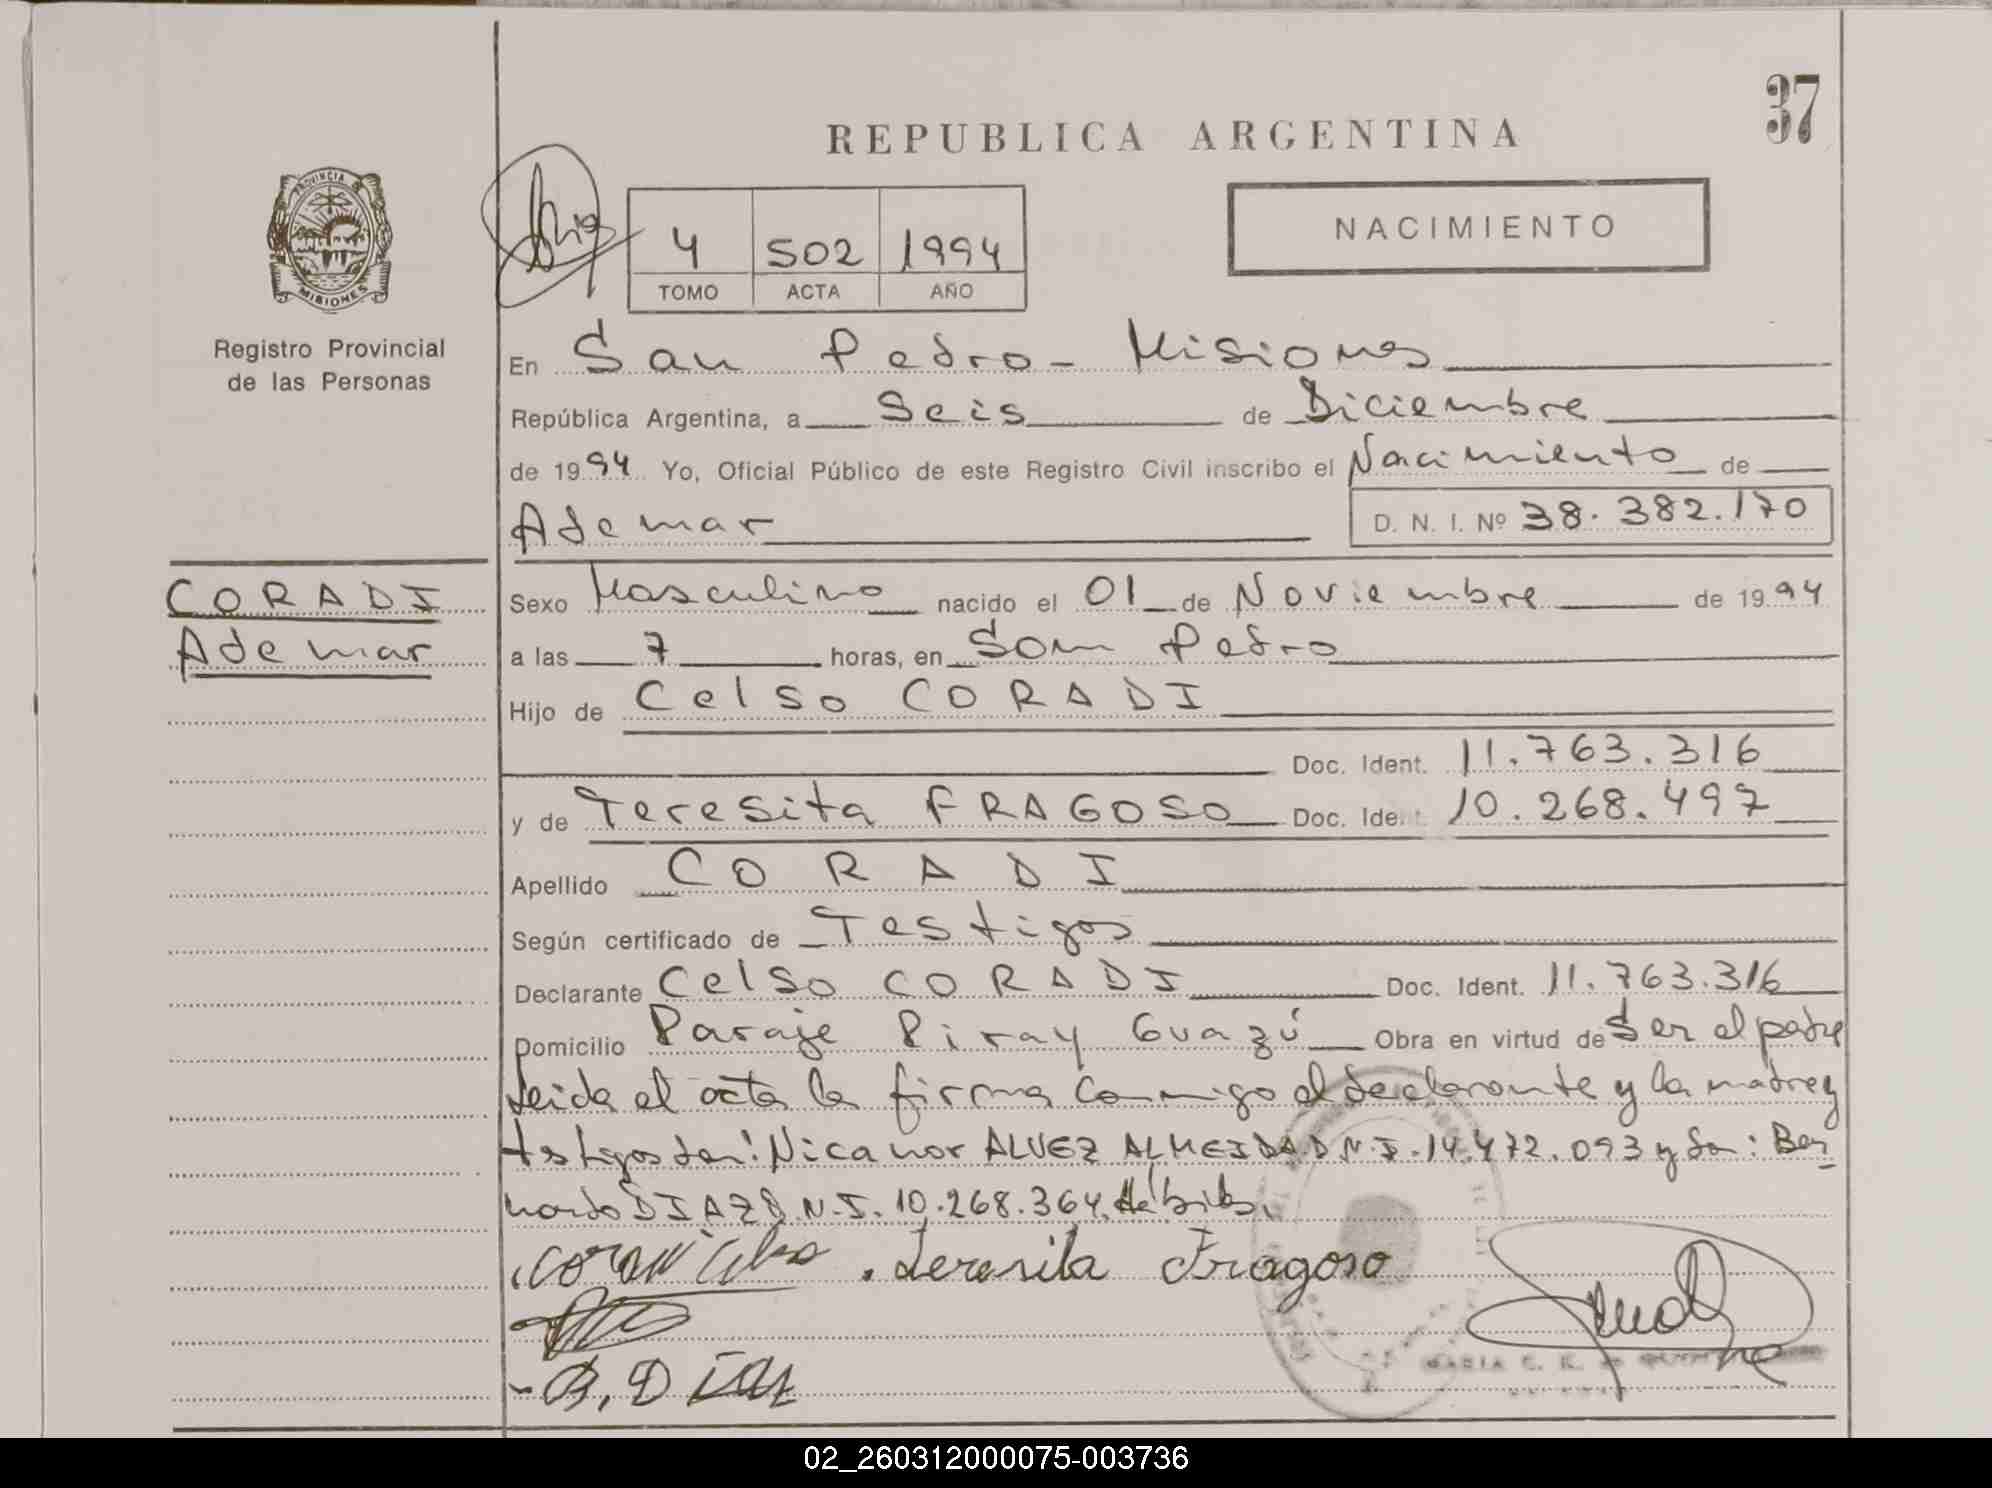 37
REPUBLICA ARGENTINA
NACIMIENTO
4 502 1994
TOMO ACTA AÑO
PROVINCIA DE
MISIONES
Registro Provincial
de las Personas
En San Pedro - Misiones
República Argentina, a Seis de Diciembre
de 1994 Yo, Oficial Público de este Registro Civil inscribo el Nacimiento de
Ademar D. N. I. Nº 38.382.170
CORADI
Ademar
Sexo Masculino nacido el 01 de Noviembre de 1994
a las 7 horas, en San Pedro
Hijo de Celso CORADI
Doc. Ident. 11.763.316
y de Teresita FRAGOSO Doc. Ident. 10.268.497
Apellido CORADI
Según certificado de Testigos
Declarante Celso CORADI Doc. Ident. 11.763.316
Domicilio Paraje Piray Guazú Obra en virtud de Ser el padre
Leida el acta la firma conmigo el declarante y la madre y
testigos Nicanor ALVEZ ALMEIDA D.N.I. 14.472.093 y Ber
nardo DIAZ D.N.I. 10.268.364
Teresita Fragoso
B. DIAZ
MARIA C. R. de
02_260312000075-003736